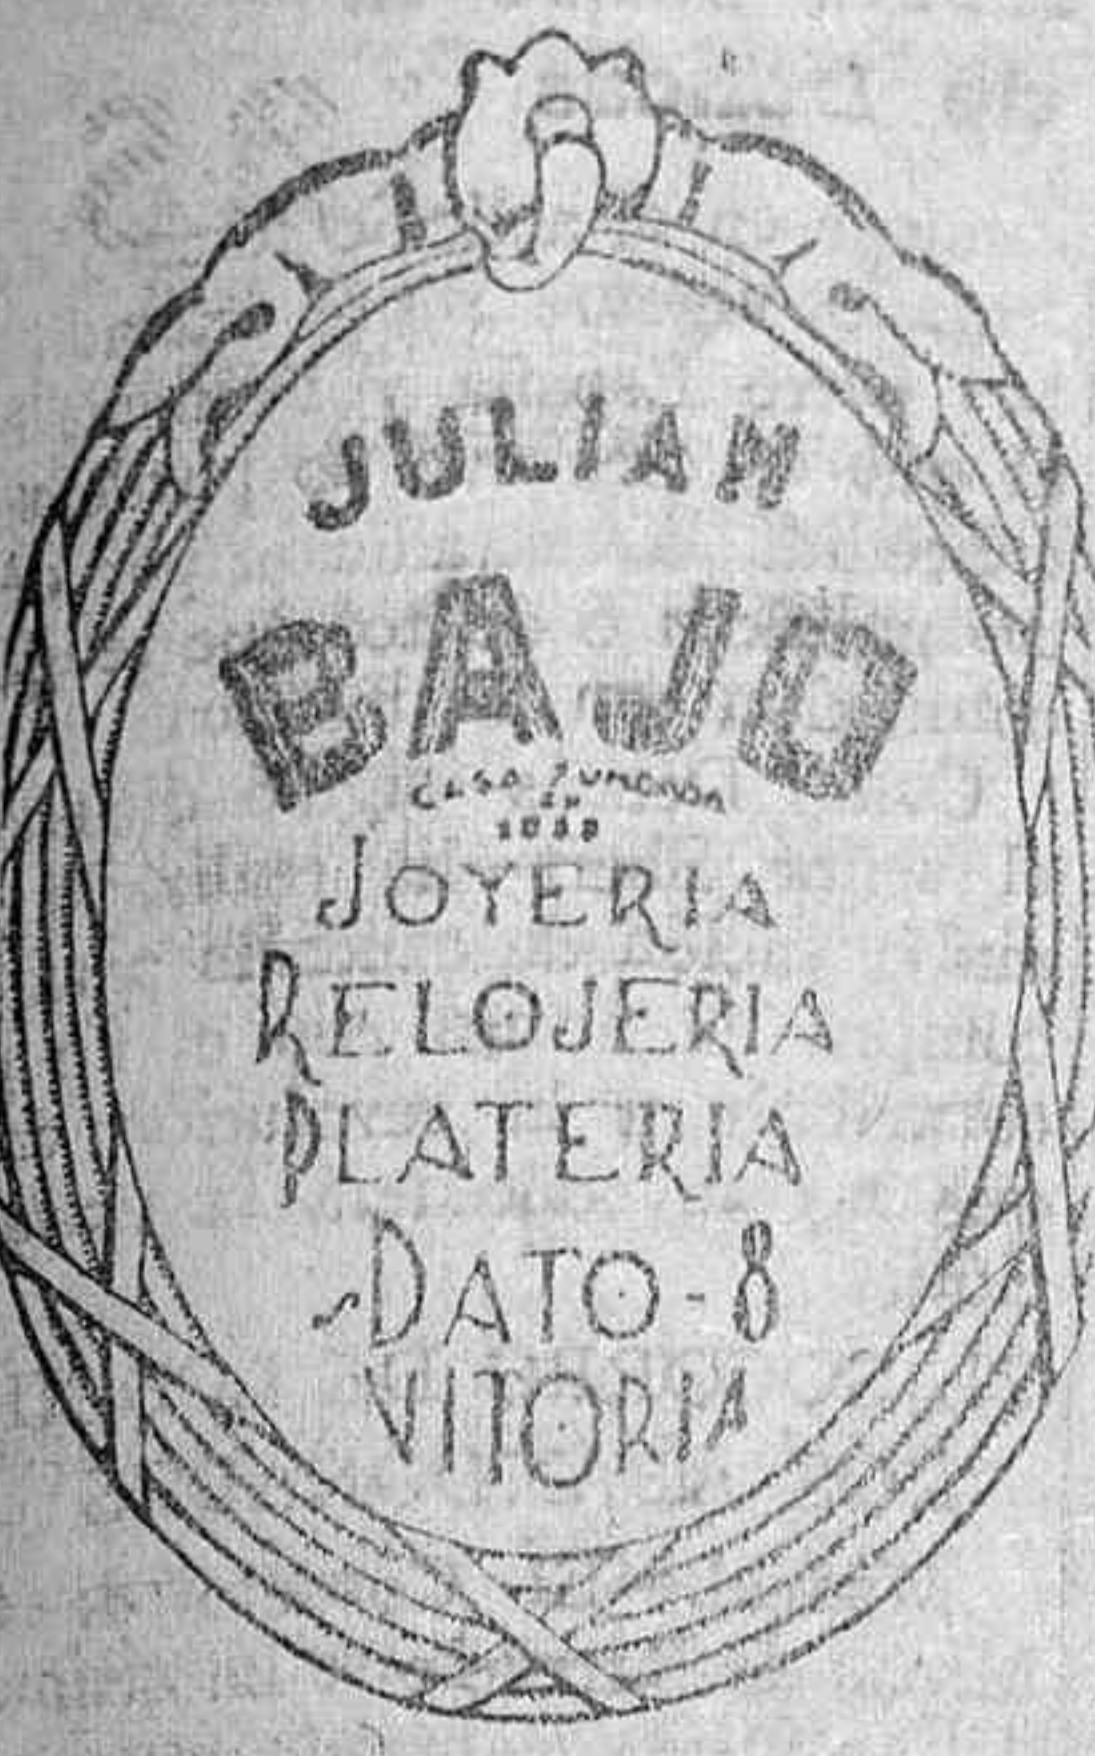 JULIAN
BAJO
CASA FUNDADA
EN
JOYERIA
RELOJERIA
PLATERIA
DATO-8
VITORIA